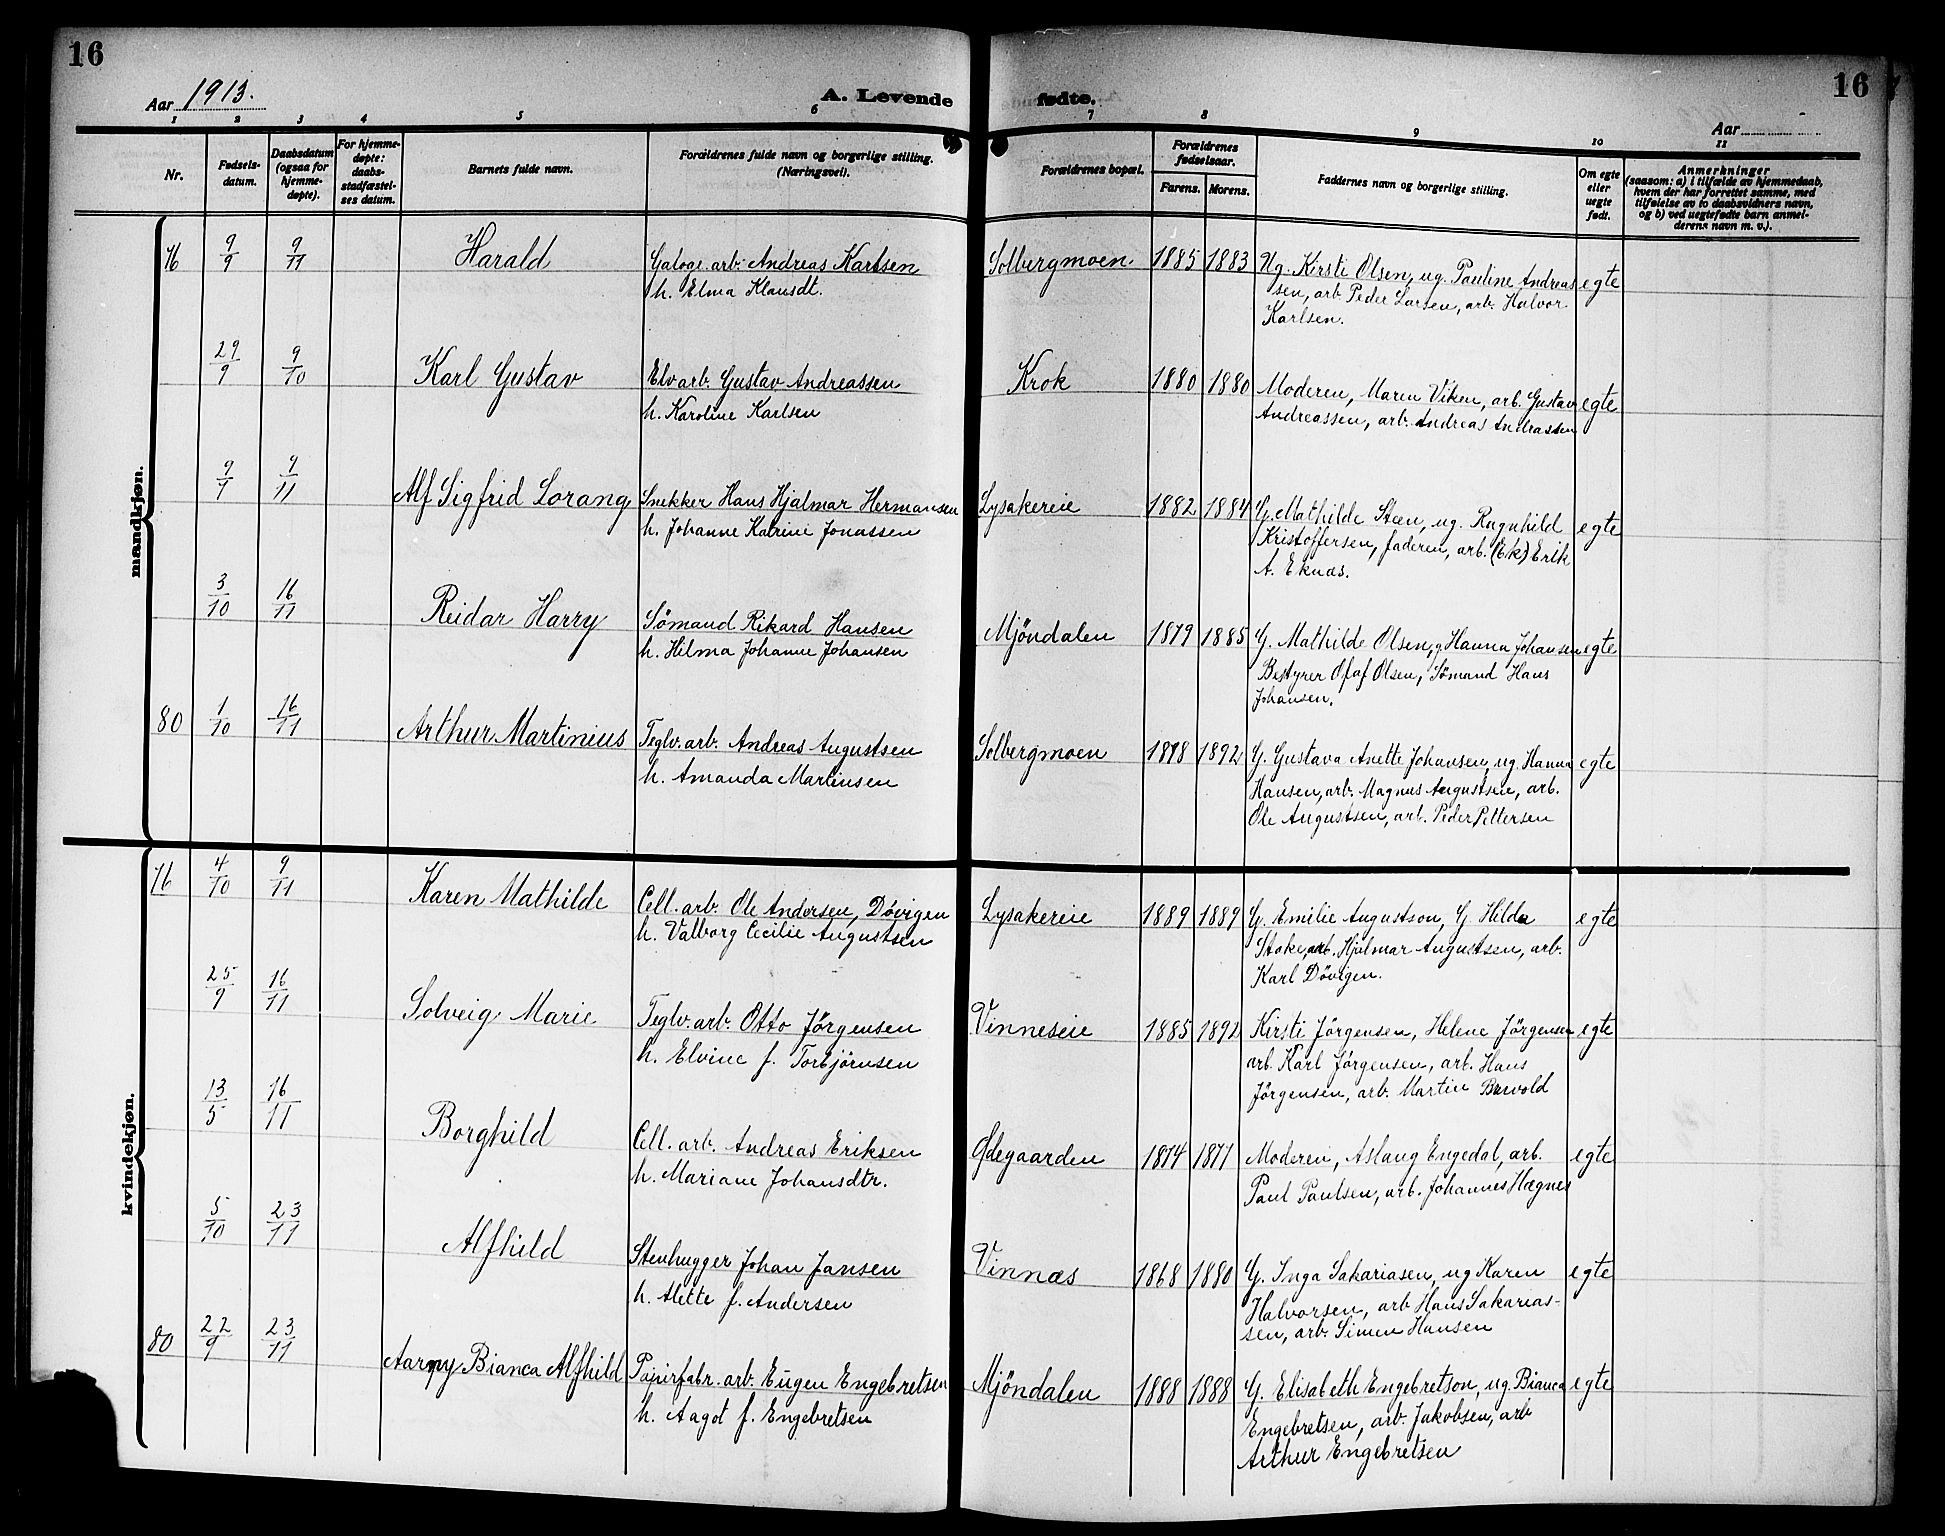 16
16
Aar 1913.
A. Levende
fødte.
Aar
1 2 3 4 5 6 7 8 9 10 11
Nr.
Fødsels-
datum.
Daabsdatum
(ogsaa for
hjemme-
døpte).
For hjemme-
døpte:
daabs-
stadfæstel-
ses datum.
Barnets fulde navn.
Forældrenes fulde navn og borgerlige stilling.
(Næringsvei).
Forældrenes bopæl.
Forældrenes
fødselsaar.
Farens. Morens.
Faddernes navn og borgerlige stilling.
Om egte
eller
uegte
født.
Anmerkninger
(saasom: a) i tilfælde av hjemmedaab,
hvem der har forrettet samme, med
tilføielse av to daabsvidners navn,
og b) ved uegtefødte barn anmel-
derens navn m. v.).
mandkjøn.
76 9/9 9/11 Harald Galoge. arb. Andreas Karlsen Solbergmoen 1885 1883 Ug. Kirsti Olsen, ug. Pauline Andreas egte
h. Elma Klausdt. sen, arb. Peder Larsen, arb. Halvor
Karlsen.
29/9 9/10 Karl Gustav Elvarb. Gustav Andreassen Krok 1880 1880 Moderen, Maren Viken, arb. Gustav egte
h. Karoline Karlsen Andreassen, arb. Andreas Andrassen
9/7 9/11 Alf Sigfrid Lorang Snekker Hans Hjalmar Hermansen Lysakereie 1882 1884 G. Mathilde Steen, ug. Ragnhild egte
h. Johanne Katrine Jonassen Kristoffersen, faderen, arb. (Ek) Erik
A. Eknæs.
3/10 16/11 Reidar Harry Sømand Rikard Hansen Mjöndalen 1879 1885 G. Mathilde Olsen, g. Hanna Johansen egte
h. Hilma Johanne Johansen Bestyrer Olaf Olsen, Sømand Hans
Johansen.
80 1/10 16/11 Arthur Martinius Teglv. arb. Andreas Augustsen Solbergmoen 1878 1892 G. Gustava Anette Johansen, ug. Hanna egte
h. Amanda Martinsen Hansen, arb. Magnus Augustsen, arb.
Ole Augustsen, arb. Peder Pettersen
kvindekjøn.
76 4/10 9/11 Karen Mathilde Cell. arb. Ole Andersen, Døvigen Lysakereie 1889 1889 G. Emilie Augustson, G. Hilda egte
h. Valborg Cecilie Augustsen Stoke, arb. Hjalmar Augustsen, arb.
Karl Døvigen.
25/9 16/11 Solveig Marie Teglv. arb. Otto Jörgensen Vinneseie 1885 1892 Kirsti Jörgensen, Helene Jörgensen egte
h. Elvine f. Torbjörnsen arb. Karl Jörgensen, arb. Hans
Jörgensen, arb. Martin
13/5 16/11 Borghild Cell. arb. Andreas Eriksen Ødegaarden 1874 1877 Moderen, Aslaug Engedal, arb. egte
h. Mariane Johansdtr. Paul Paulsen, arb. Johannes Hagnes
5/10 23/11 Alfhild Stenhugger Johan Jansen Vinnæs 1868 1880 G. Inga Sakariasen, ug Karen egte
h. Alette f. Andersen Halvorsen, arb Hans Sakarias-
sen, arb. Simen Hansen
80 22/9 23/11 Aarny Bianca Alfhild Papirfabr. arb. Eugen Engebretsen Mjöndalen 1888 1888 G. Elisabeth Engebretson, ug. Bianca egte
h. Aagot f. Engebretsen Engebretsen, arb. Jakobsen, arb
Arthur Engebretsen